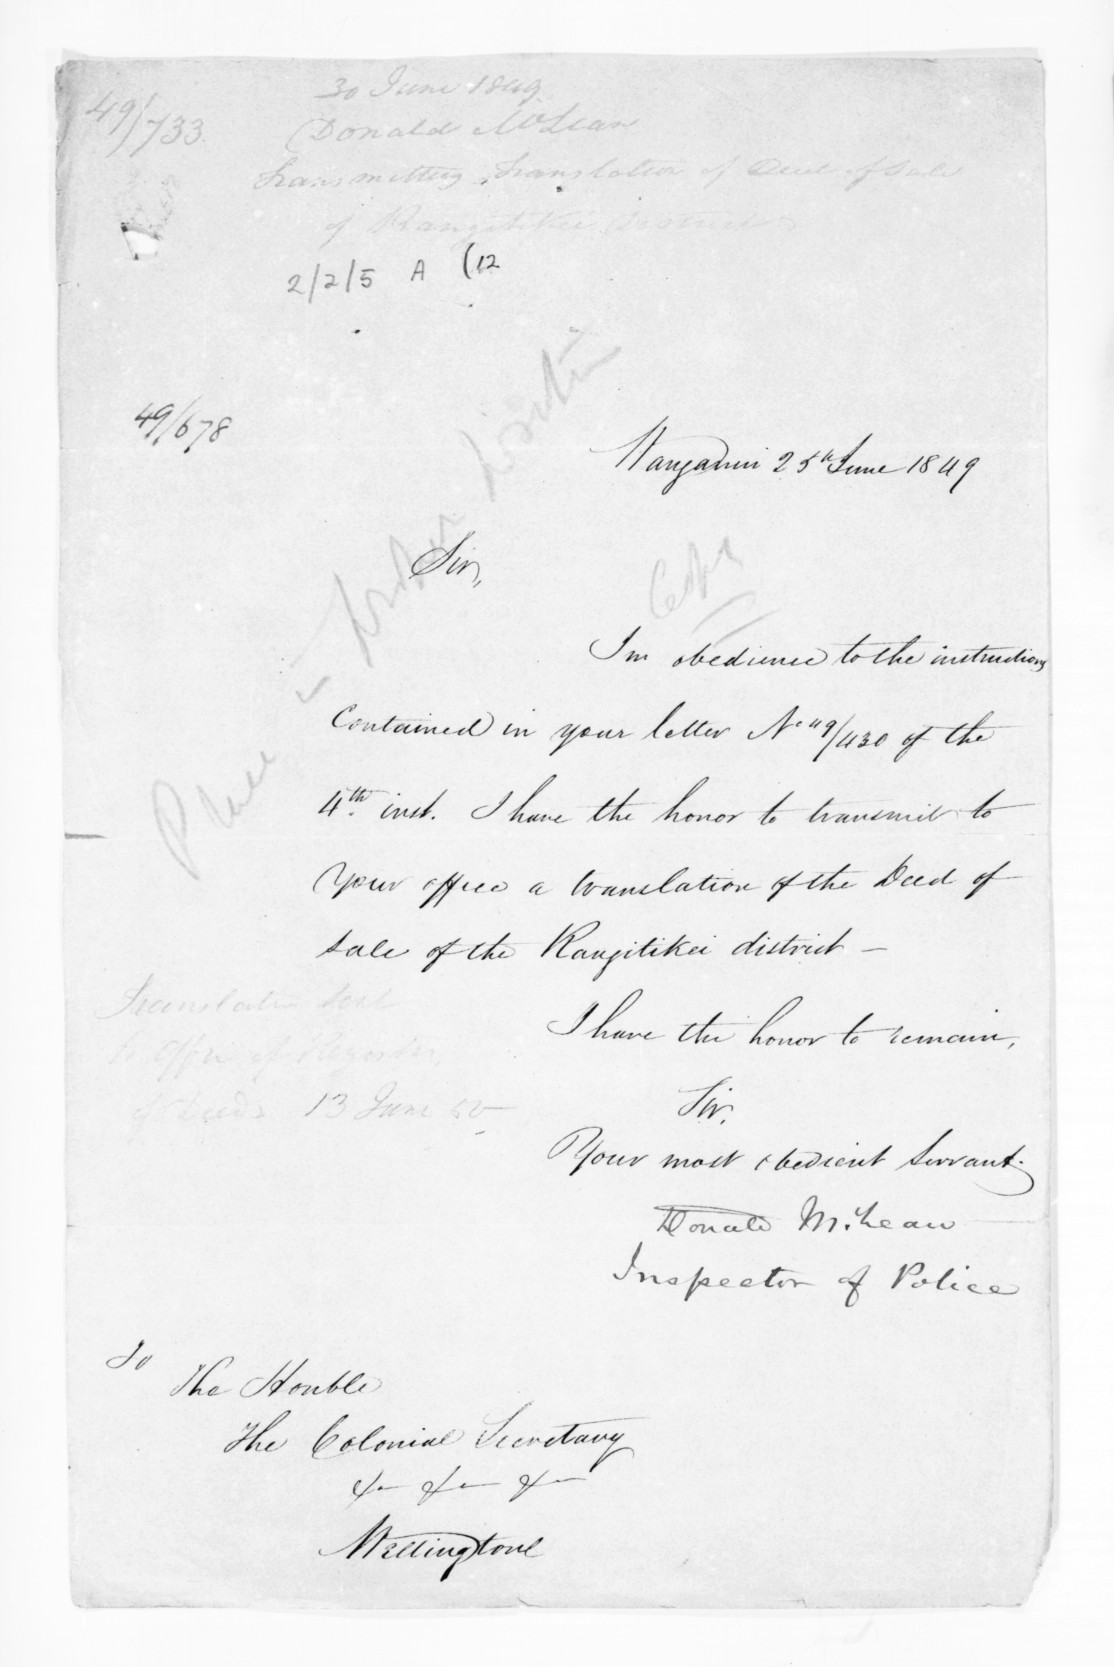 30 June 1849
49/733
Donald McLean
Transmitting Translation of Deed of Sale
of Rangitikei District
2/2/5 A (12
49/678
Wanganui 25th June 1849
Copy
Sir,
In obedience to the instructions
Contained in your letter No 49/430 of the
4th inst. I have the honor to transmit to
your office a translation of the Deed of
Sale of the Rangitikei district —
I have the honor to remain,
Sir,
Your most obedient Servant.
Donald McLean
Inspector of Police
Translation sent
to Office of Register
of Deeds 13 June 50
To
The Honble
The Colonial Secretary
&c &c &c
Wellington